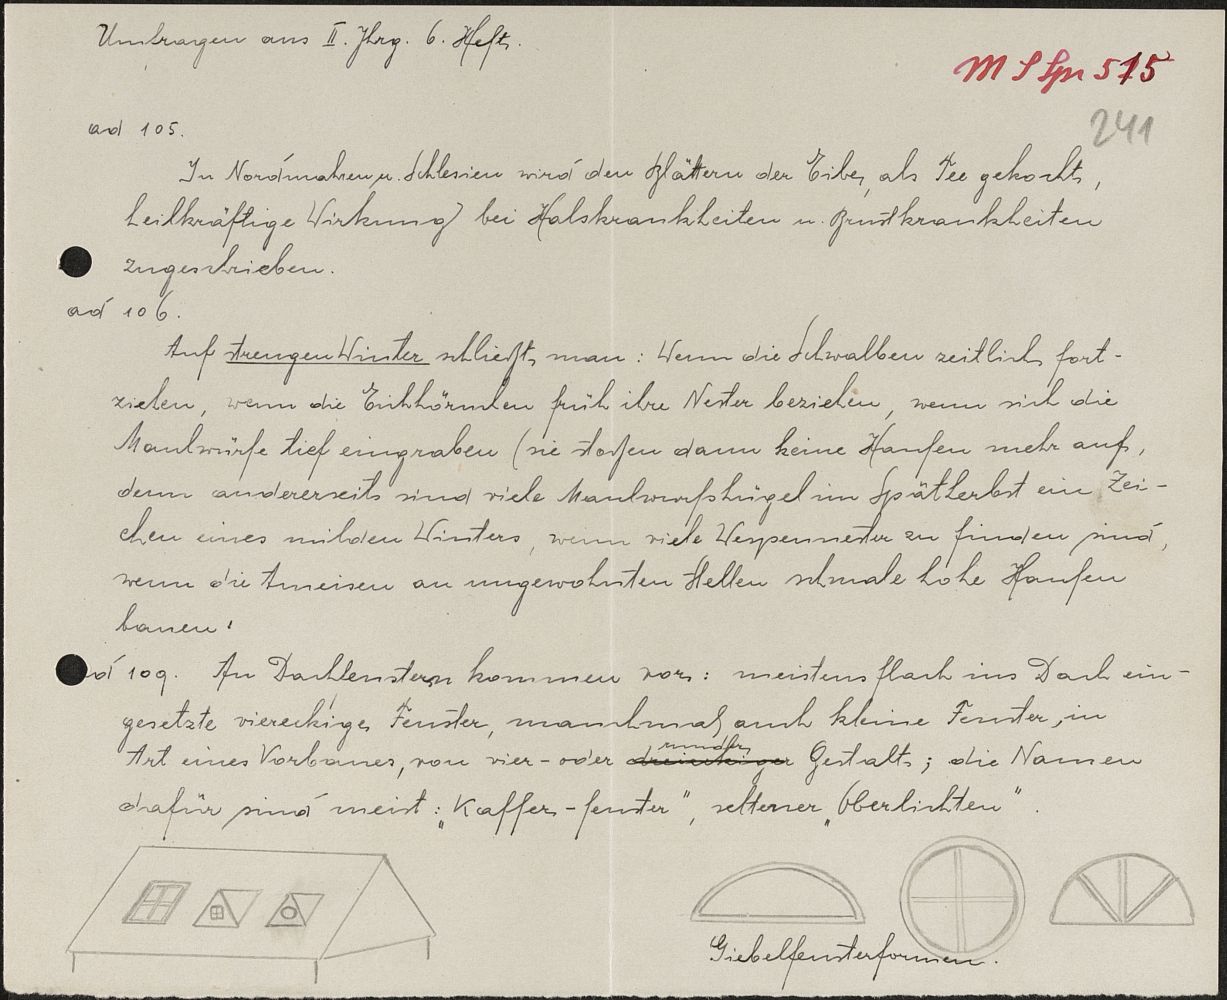 Umfragen aus II. Jhrg. 6. Heft.
M S Spr 515
241
ad 105.
In Nordmähren u. Schlesien wird den Blättern der Eibe, als Tee gekocht,
heilkräftige Wirkung bei Halskrankheiten u. Brustkrankheiten
zugeschrieben.
ad 106.
Auf strengen Winter schließt man: Wenn die Schwalben zeitlich fort-
ziehen, wenn die Eichhörnchen früh ihre Nester beziehen, wenn sich die
Maulwürfe tief eingraben (sie stoßen dann keine Haufen mehr auf,
denn andererseits sind viele Maulwurfshügel im Spätherbst ein Zei-
chen eines milden Winters, wenn viele Wespennester zu finden sind,
wenn die Ameisen an ungewohnten Stellen schmale hohe Haufen
bauen.
ad 109. An Dachfenstern kommen vor: meistens flach ins Dach ein-
gesetzte viereckige Fenster, manchmal auch kleine Fenster, in
Art eines Vorbaues, von vier- oder dreieckiger runder Gestalt; die Namen
dafür sind meist: „Kaffer-fenster", seltener „Oberlichten".
Giebelfensterformen.